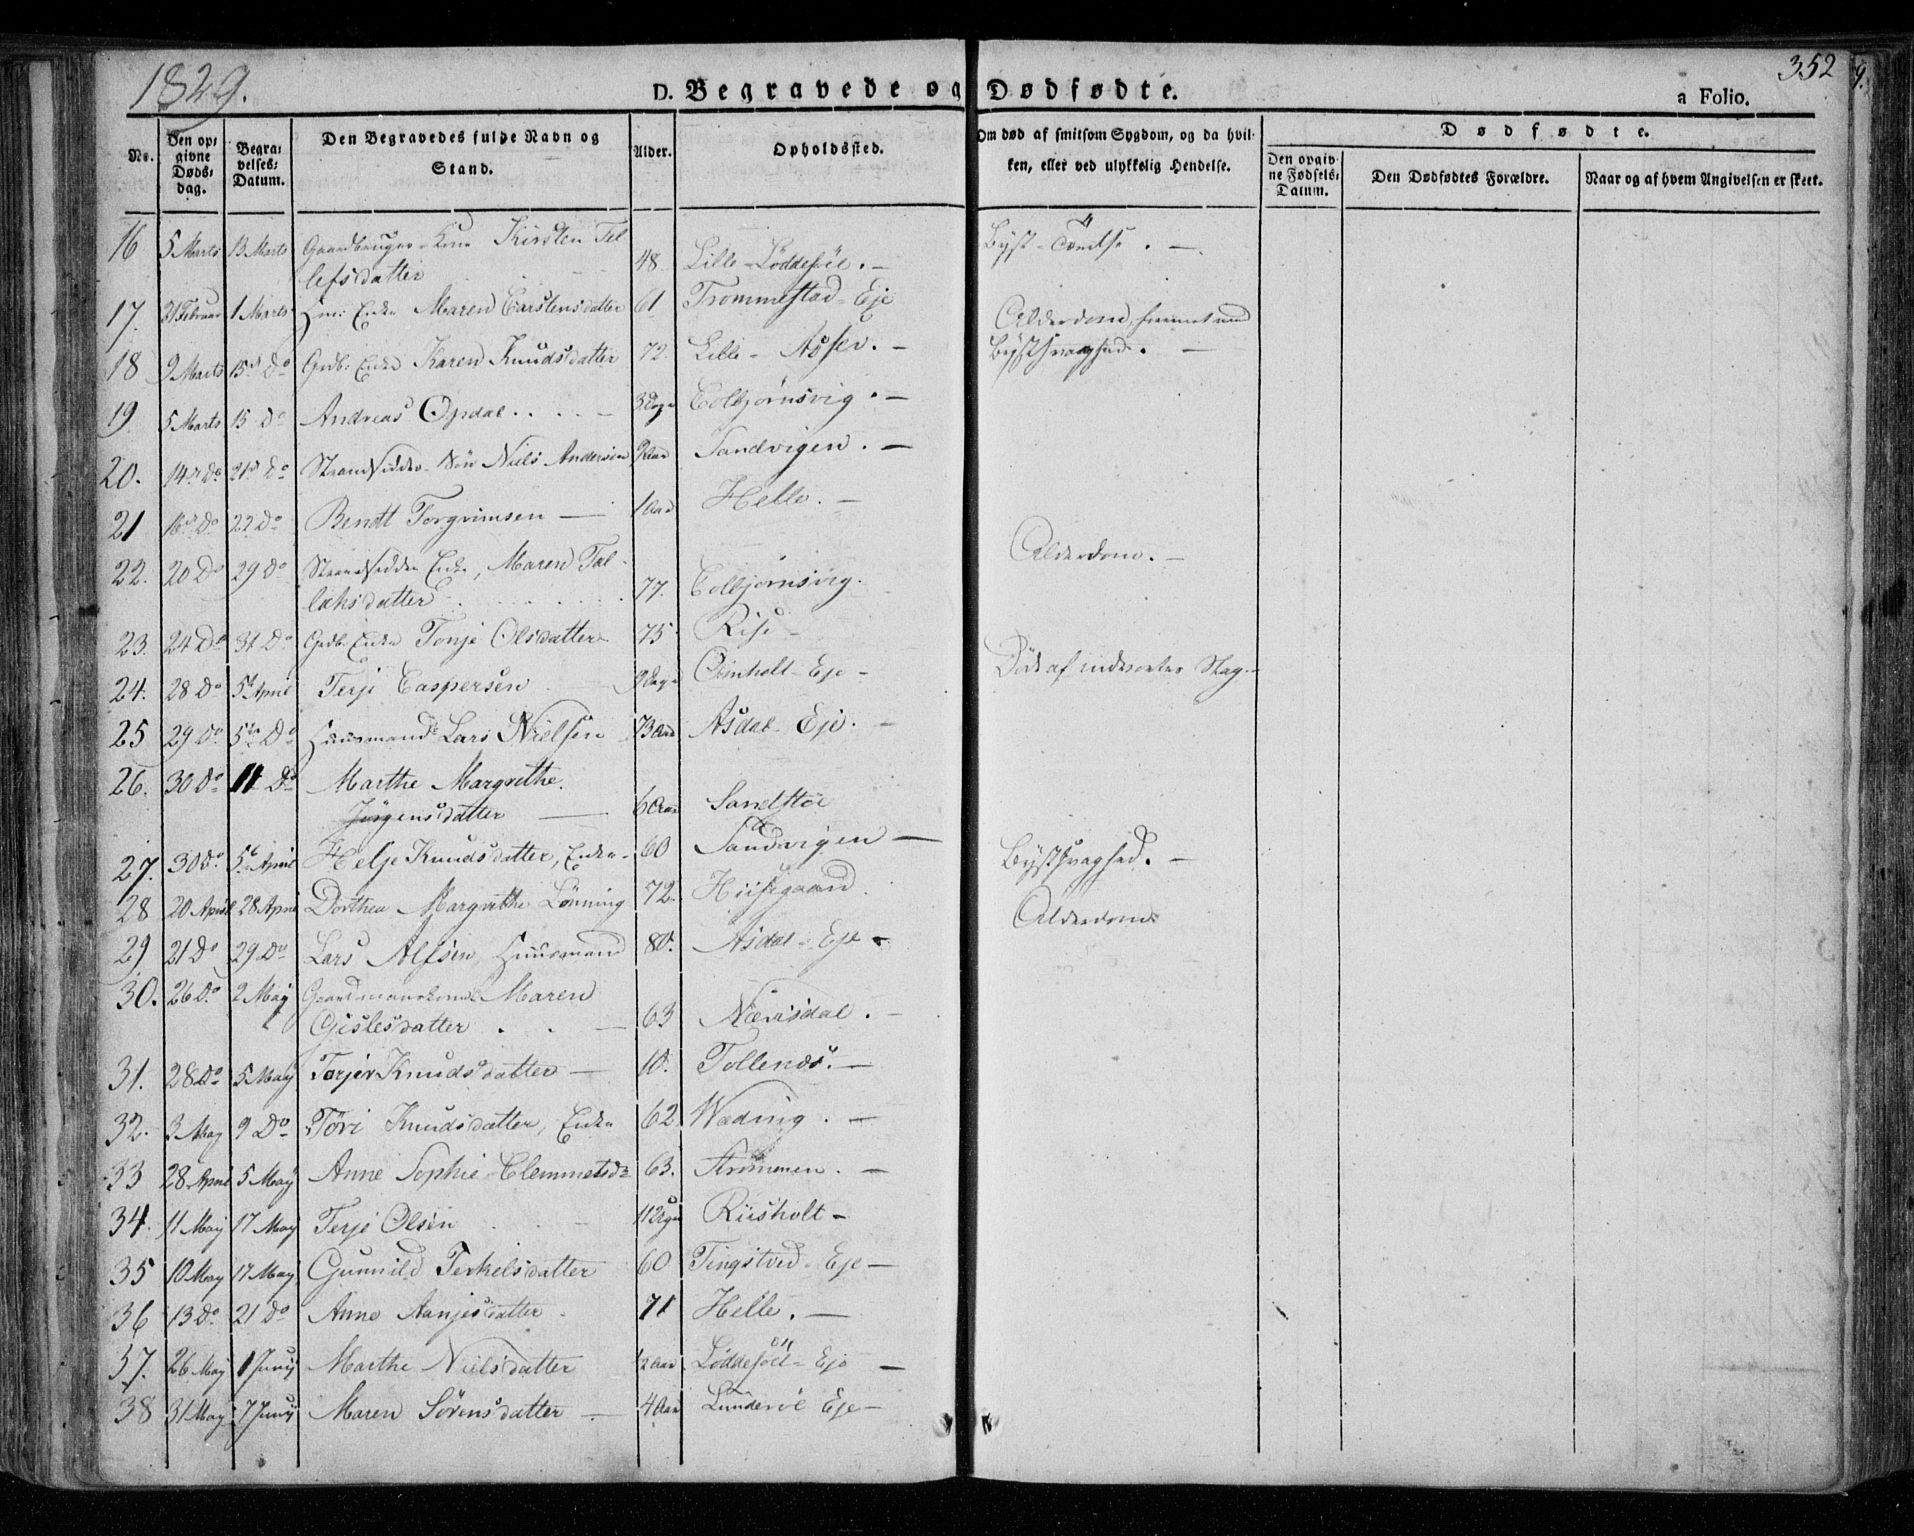 1829.
D. Begravede og Dødfødte.
352
a Folio.
No.
Den opgivne Dødsdag.
Begravelses Datum.
Den Begravedes fulde Navn og Stand.
Alder.
Opholdssted.
Om død af smitsom Sygdom, og da hvilken, eller ved ulykkelig Hendelse.
Dødfødte.
Den opgivne Fødsels Datum.
Den Dødfødtes Forældre.
Naar og af hvem Angivelsen er skeet.
16 5 Marts 13 Marts Gaardbruger Kone Kirsten Tellefsdatter 48. Lille Løddesöl. — Byst
17. 21 Februar 1 Marts Enke Maren Carstensdatter 61 Trommestad Eje Alderdom
18 9 Marts 15 Do Gvdb. Enke Karen Knudsdatter 72. Lille Asser. — Bystsvaghed. —
19 5 Marts 15 Do Andreas Opdal 3 Dage Colbjørnsvig. —
20. 14 Do 21 Do Strandsidder Søn Niels Andersen Sandvigen. —
21 16 Do 22 Do Bendt Torgrimsen — 1 Aar Helle. —
22. 20 Do 29 Do Strandsidder Enke, Maren Tallaksdatter 77. Colbjornsvig. Alderdom. —
23. 24 Do 31 Do Gvdb. Enke Tonje Olsdatter 75 Rise —
24. 28 Do 5 April Terje Caspersen 9 Dage Eje — Död af indvortes Slag. —
25 29 Do 5 Do Huusmand Lars Nielsen 73 Aar Asdal Eje. —
26. 30 Do 11 Do Marthe Margrethe Jörgensdatter — 6 Aar Sandstöe
27. 30 Do 5 April Helje Knudsdatter, Enke 60 Sandvigen — Bystsvaghed. —
28 20 April 28 April Dorthea Margrethe Lønning 72. Hiisegaard. Alderdom
29 21 Do 29 Do Lars Alfsen, Huusmand 80. Asdal Eje —
30. 26 Do 2 May Gaardmandskone Maren Gislesdatter 63 Nævisdal. —
31. 28 Do 5 May Torjer Knudsdatter — 10. Tollenæs. —
32. 3 May 9 Do Töri Knudsdatter, Enke 62 Wædring. —
33 28 April 5 May Anne Sophie Clemmetsd. 63. Strømmen. —
34. 11 May 17 May Terje Olsen Riisholt —
35 10 May 17 May Gunnild Terkelsdatter 60 Tingstved Eje —
36 13 Do 21 Do Anne Aanjesdatter 71 Helle. —
37. 26 May 1 Juny Marthe Nielsdatter ½ Aar Løddesöel Eje —
38 31 May 7 Juny Maren Sörensdatter — 4 Aar Lunderöe Eje —